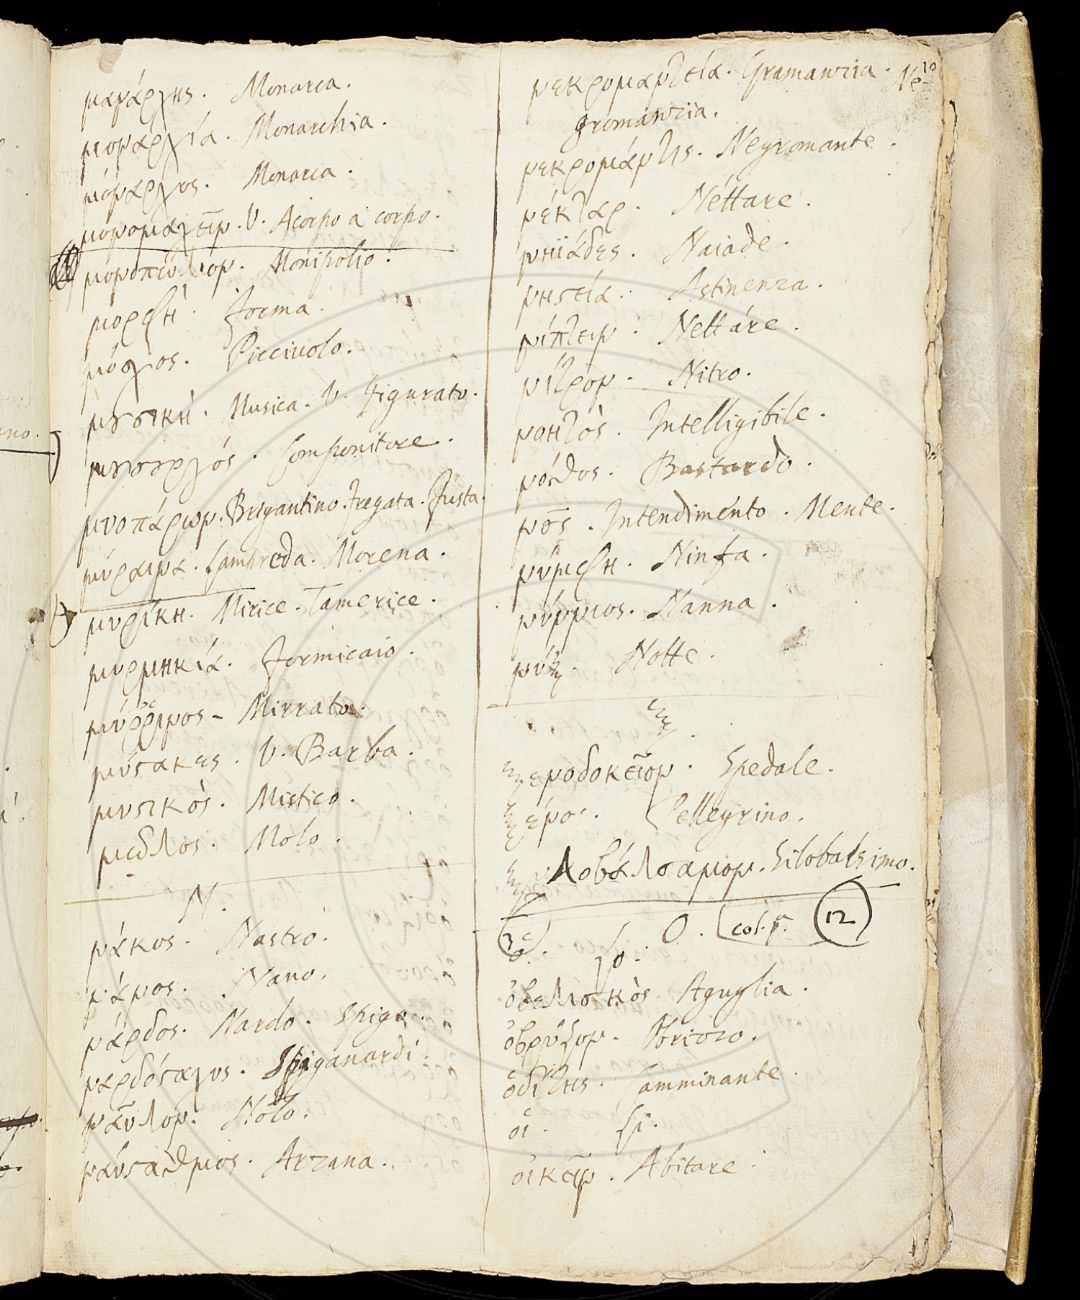 μονάρχης. Monarca.
μοναρχία. Monarchia.
μόναρχος. Monarca.
μονομαχεῖν. V. Acorpo a corpo.
μονοπώλιον. Monipolio.
μορφή. Forma.
μόσχος. Piccivolo.
μουσική. Musica. V. Figurato.
μουσουργός. Componitore.
μυοπάρων. Brigantino. Fregata. Fusta.
μύραινα. Lampreda. Morena.
μυρίκη. Mirice. Tamerice.
μυρμηκία. Formicaio.
μύῤῥινος - Mirrato.
μύστακες. V. Barba.
μυστικὸς. Mistico.
Molo.
N.
νάκος. Nastro.
νάνος. Nano.
νάρδος. Nardo. Spiga.
νάρδόσταχυς. Spiganardi.
ναῦλον. Nolo.
ναύσταθμος. Arzana.
10
νεκρομαντεία. Gramanzia. Ne-
gromanzia.
νεκρομάντης. Negromante.
νέκταρ. Néttare.
νηϊάδες. Naiade.
νηστεία. Astinenza.
νίπτειν. Nettáre.
νίτρον. Nitro.
νοητὸς. Intelligibile.
νόθος. Bastardo.
νοῦς. Intendimento. Mente.
νύμφη. Ninfa.
νύννιος. Nanna.
νύξ. Notte.
ξ.
ξενοδοκεῖον. Spedale.
ξένος. Pellegrino.
ξυλοβάλσαμον. Silobalsimo.
O. col. p. 12
ὁ. Lo.
ὀβελισκὸς. Aguglia.
ὀβρύζον. Orizzo.
ὁδίτης. Camminante.
οἱ. Li.
οἰκεῖν. Abitare.